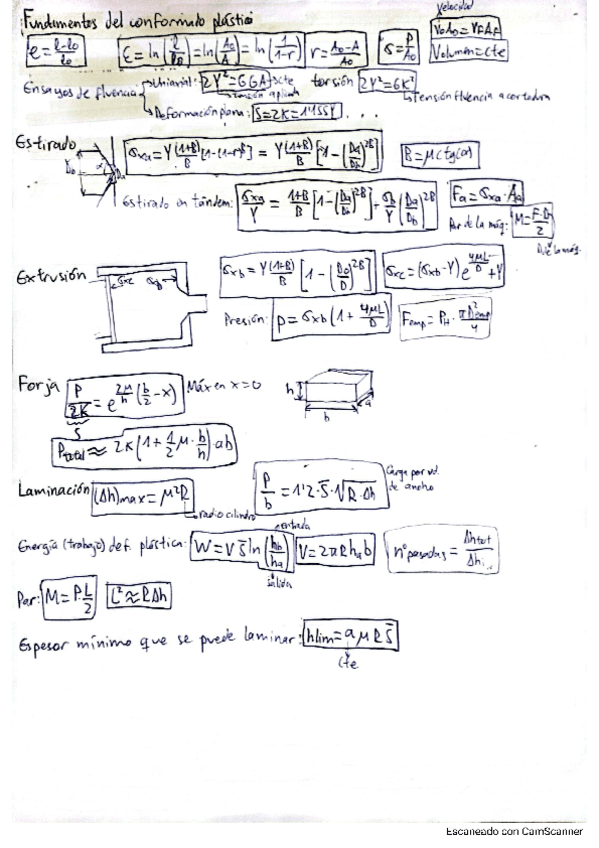 Fundamentos del conformado plástico
e = (l-l₀)/l₀   ε = ln(l/l₀) = ln(A₀/A) = ln(1/(1-r))   r = (A₀-A)/A₀   σ = P/A₀   velocidad V₀A₀ = V_F A_F
Volumen = cte
Ensayos de fluencia
Uniaxial: 2Y² = 6GA → cte   torsión 2Y² = 6K²
tensión aplicada   Tensión fluencia a cortadura
Deformación plana: S = 2K = 1'155Y ...
Estirado   D₀   α   Da   σxa = Y (1+B)/B [1-(1-r)ᴮ] = Y (1+B)/B [1-(Da/Db)²ᴮ]   B = μ ctg(α)
Estirado en tándem: σxa/Y = (1+B)/B [1-(Da/Db)²ᴮ] + σb/Y (Da/Db)²ᴮ   Fa = σxa · Aa
Par de la máq: M = F·D/2
D: de la máq.
Extrusión   σxc   σxb   σxb = Y (1+B)/B [1-(D₀/D)²ᴮ]   σxc = (σxb - Y) e^(4μL/D) + Y
Presión: p = σxb (1 + 4μL/D)   Femp = P_H · πD²emp/4
Forja   P/2K = e^(2μ/h (b/2 - x))   Máx en x=0   h   b   a
S
Ptotal ≈ 2K (1 + 1/2 μ · b/h) · ab
Laminación   (Δh)max = μ²R   P/b = 1'2 · S̄ · √(R·Δh)   Carga por ud. de ancho
radio cilindro
Energía (trabajo) def. plástica: W = V S̄ ln(hb/ha)   V = 2πR ha b   nº pasadas = Δhtot/Δhi
entrada
salida
Par: M = P·L/2   L² ≈ RΔh
Espesor mínimo que se puede laminar: hlim = a μ R S̄
cte
Escaneado con CamScanner